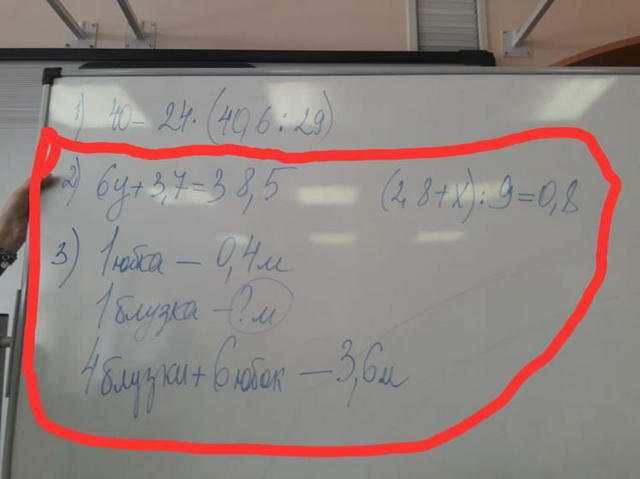 1) 40 - 24 · (40,6 : 29)
2) 6y + 3,7 = 38,5 (2,8 + x) : 9 = 0,8
3) 1 юбка — 0,4 м
1 блузка — ? м
4 блузки + 6 юбок — 3,6 м